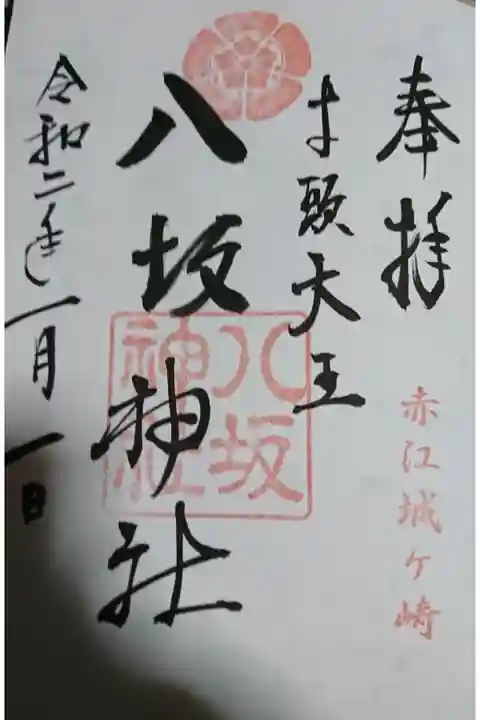 奉拝
赤江城ヶ崎
牛頭天王
八坂神社
八坂
神社
令和二年一月一日